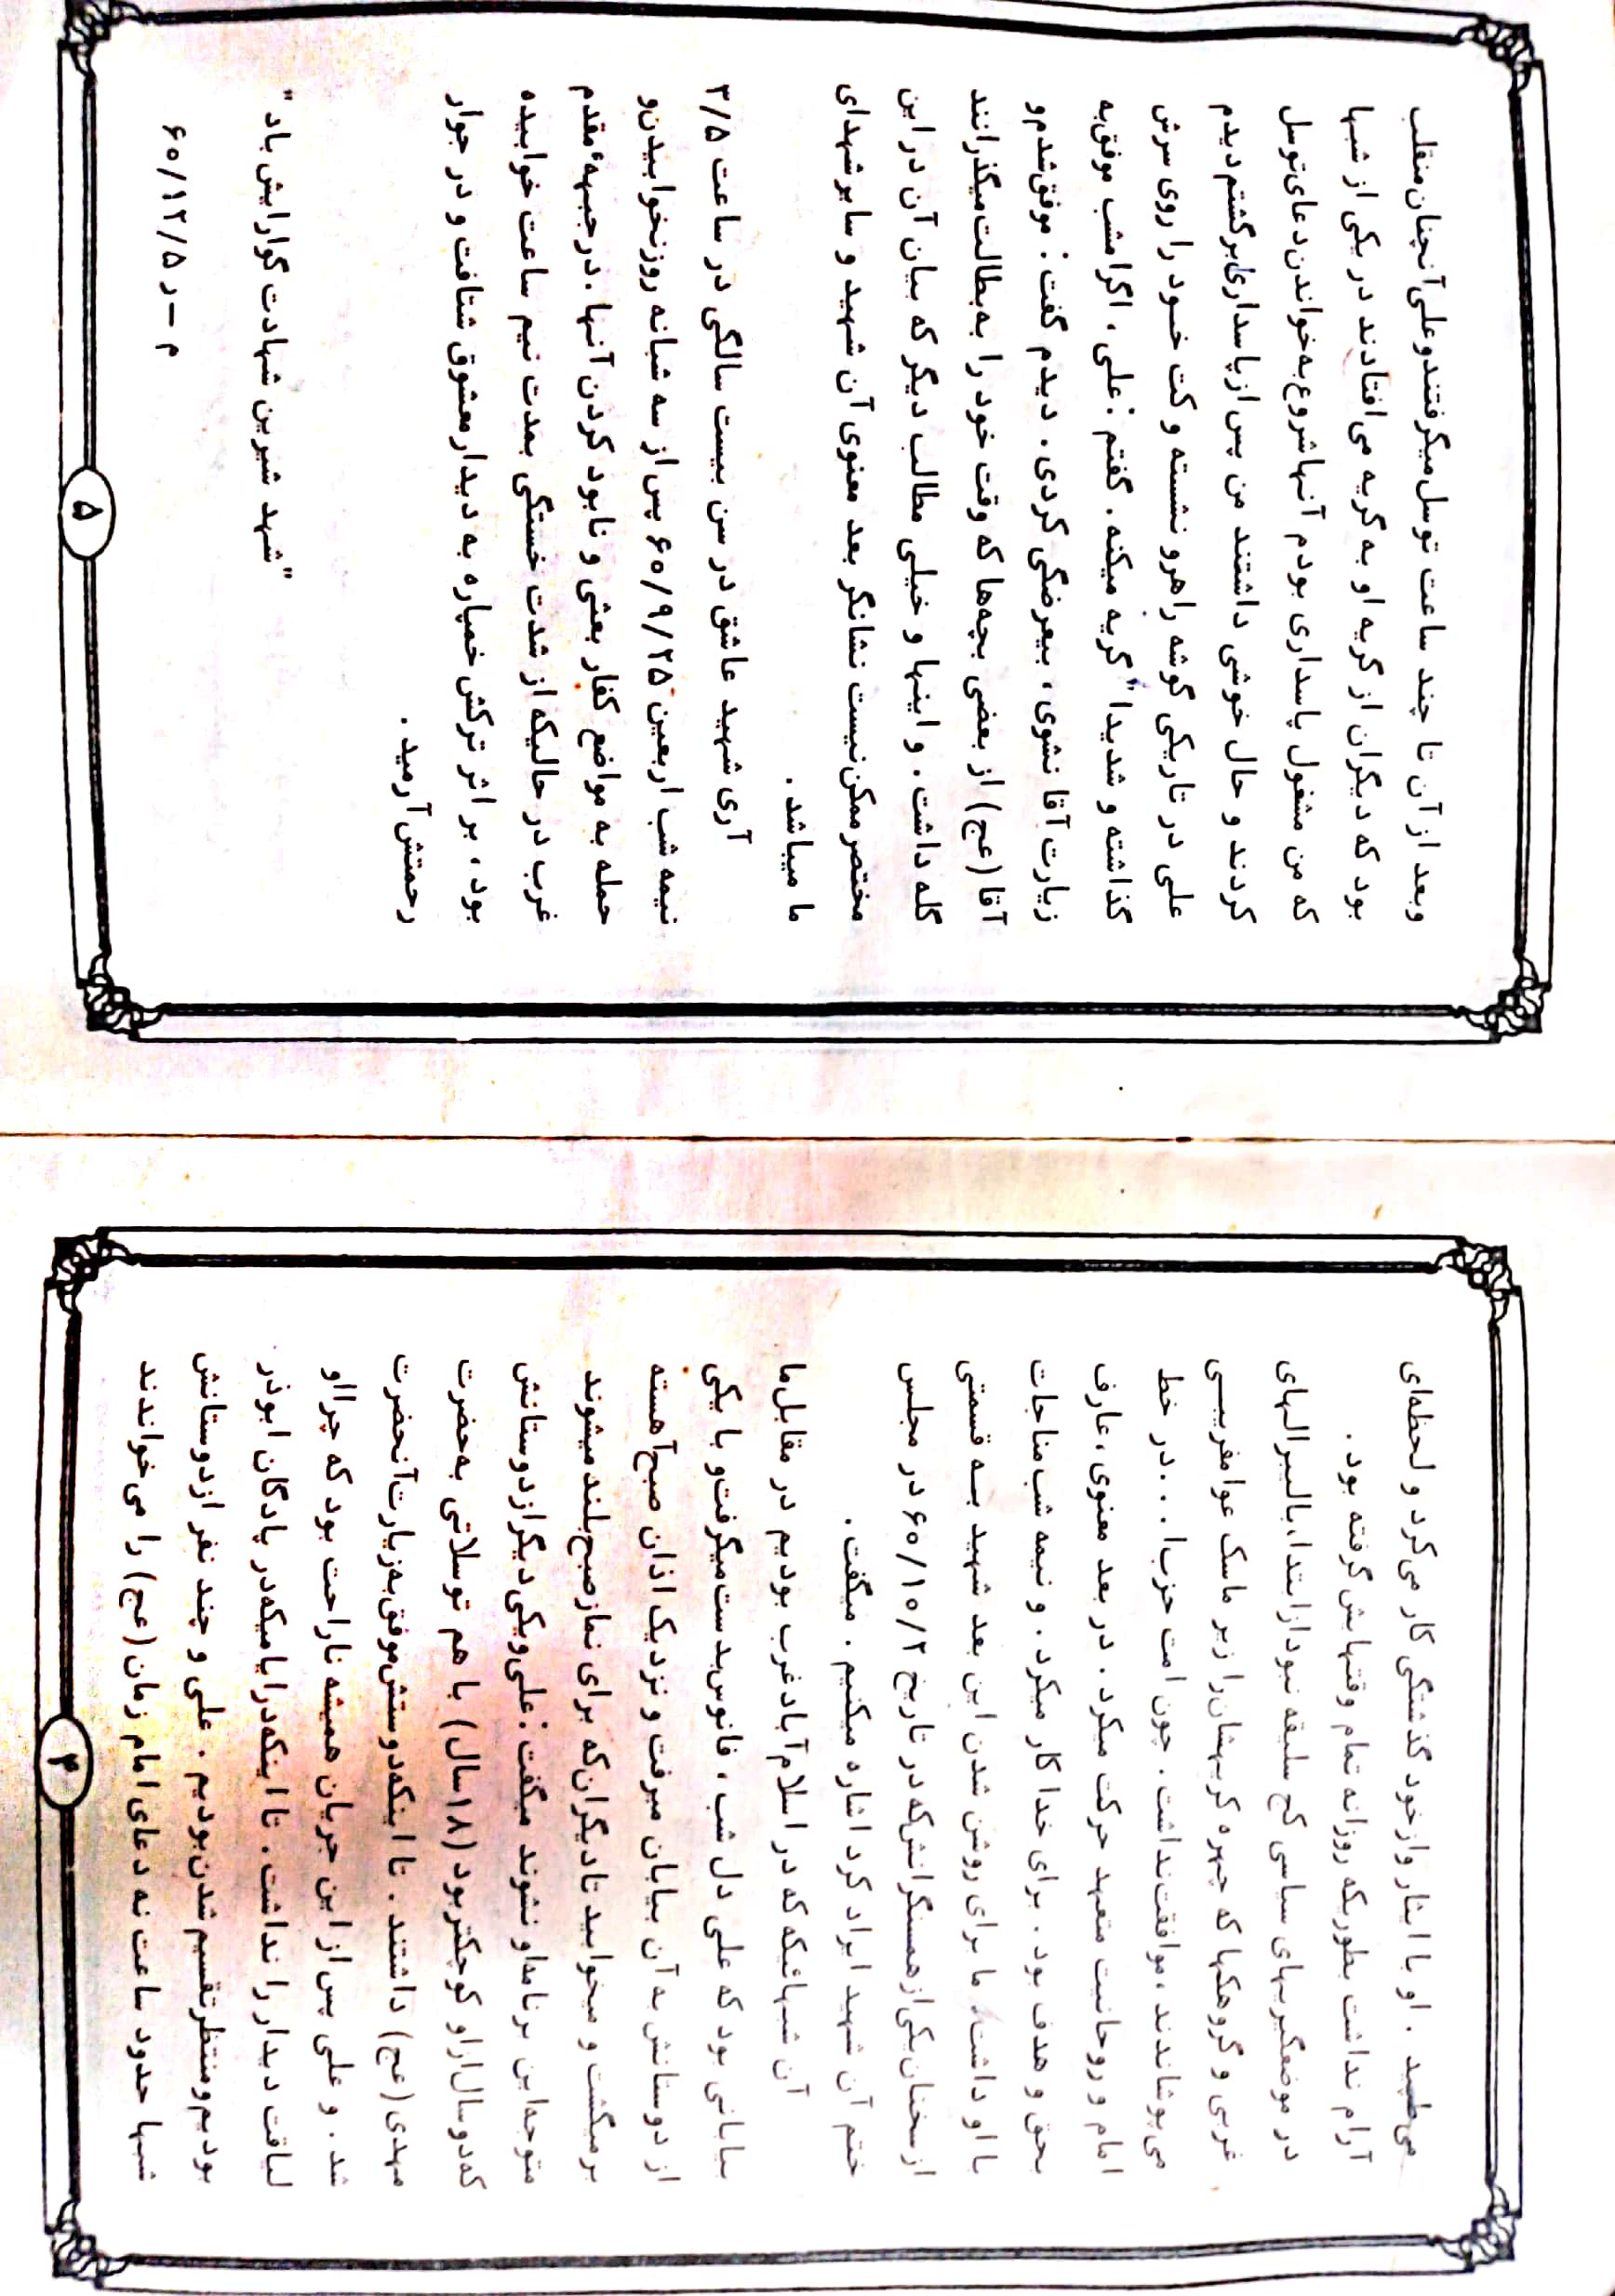 می‌طپید . او با ایثار و از خود گذشتگی کار می‌کرد و لحظه‌ای
آرام نداشت بطوریکه روزانه تمام وقتهایش گرفته بود .
در موضعگیریهای سیاسی کج سلیقه نبود از ابتدا، با لیبرالهای
غربی و گروهکها که چهره کریهشان را زیر ماسک عوامفریبـــی
می‌پوشاندند ، موافقت نداشت . چون امت حزب‌ا . . . در خط
امام و روحانیت متعهد حرکت میکرد . در بعد معنوی ، عارف
بحق و هدف بود . برای خدا کار میکرد . و نیمه شب مناجات
با او داشت ، ما برای روشن شدن این بعد شهید بـه قسمتی
از سخنان یکی از همسنگرانش که در تاریخ ۶۰/۱۰/۲ در مجلس
ختم آن شهید ایراد کرد اشاره میکنیم . میگفت .
آن شبهائیکه که در اسلام‌آباد غرب بودیم در مقابل ما
بیابانی بود که علی دل شب ، فانوس بدست میگرفت و با یکی
از دوستانش به آن بیابان میرفت و نزدیک اذان صبح آهسته
برمیگشت و میخوابید تا دیگران که برای نماز صبح بلند میشوند
متوجه این برنامه او نشوند میگفت : علی و یکی دیگر از دوستانش
که دو سال از او کوچکتر بود (۱۸سال) با هم توسلاتی به حضرت
مهدی (عج) داشتند . تا اینکه دوستش موفق به زیارت آنحضرت
شد . و علی پس از این جریان همیشه ناراحت بود که چرا او
لیاقت دیدار را نداشت . تا اینکه در ایامیکه در پادگان ابوذر
بودیم و منتظر تقسیم شدن بودیم . علی و چند نفر از دوستانش
شبها حدود ساعت نه دعای امام زمان (عج) را می‌خواندند
۴
و بعد از آن تا چند ساعت توسل میگرفتند و علی آنچنان منقلب
بود که دیگران از گریه او به گریه می‌افتادند در یکی از شبها
که من مشغول پاسداری بودم آنها شروع به خواندن دعای توسل
کردند و حال خوشی داشتند من پس از پاسداری برگشتم دیدم
علی در تاریکی گوشه راهرو نشسته و کت خـود را روی سرش
گذاشته و شدیدا" گریه میکنه . گفتم : علی ، اگر امشب موفق به
زیارت آقا نشوی ، بیعرضگی کردی . دیدم گفت : موفق شدم و
آقا (عج) از بعضی بچه‌ها که وقت خود را به بطالت میگذرانند
گله داشت . و اینها و خیلی مطالب دیگر که بیان آن در این
مختصر ممکن نیست نشانگر بعد معنوی آن شهید و سایر شهدای
ما میباشد .
آری شهید عاشق در سن بیست سالگی در ساعت ۳/۵
نیمه شب اربعین ۶۰/۹/۲۵ پس از سه شبانه روز نخوابیدن و
حمله به مواضع کفار بعثی و نابود کردن آنها ، در جبههٔ مقدم
غرب در حالیکه از شدت خستگی بمدت نیم ساعت خوابیده
بود ، بر اثر ترکش خمپاره به دیدار معشوق شتافت و در جوار
رحمتش آرمید .
"شهد شیرین شهادت گوارایش باد"
م – ر ۶۰/۱۲/۵
۵